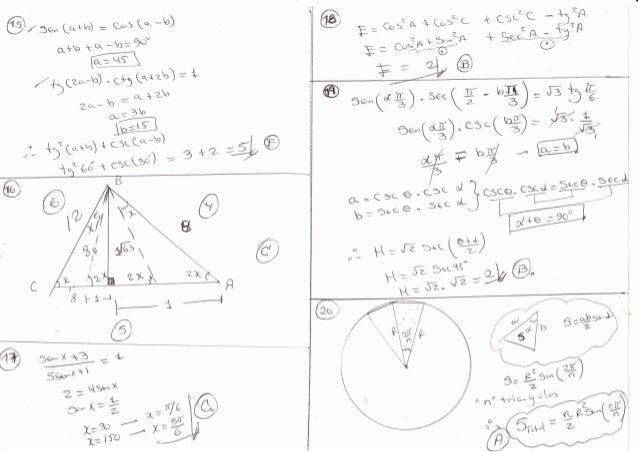 15
Sen (a+b) = Cos (a-b)
a+b + a-b = 90°
a = 45
tg (2a-b) . ctg (a+2b) = 1
2a-b = a+2b
a = 3b
b = 15
∴ tg²(a+b) + csc(a-b)
tg²60° + csc(30°) = 3 + 2 = 5 E
16
B
6
12
4
8
C
C
A
2x
2x
8
1
5
17
Senx + 3 / 5Senx + 1 = 1
2 = 4senx
Sen x = 1/2
x = 30 → x = π/6
x = 150 → x = 5π/6
C
18
E = Cos²A + Cos²C + CSC²C - tg²A
E = Cos²A + Sen²A + Sec²A - tg²A
1 1
E = 2 B
19
Sen(απ/3) . Sec(π/2 - bπ/3) = √3 tg π/6
Sen(απ/3) . csc(bπ/3) = √3 . 1/√3
απ/3 = bπ/3 → a = b
a = csc θ . csc α
b = sec θ . sec α
csc θ . csc α = sec θ . sec α
α+θ = 90°
∴ H = √2 sec(θ+α/2)
H = √2 sec 45°
H = √2 . √2 = 2 B
20
R 2π/n R
a α b
S
S = ab senα / 2
S = R²/2 Sen(2π/n)
"n" triangulos
∴ STotal = n/2 R² Sen(2π/n)
A